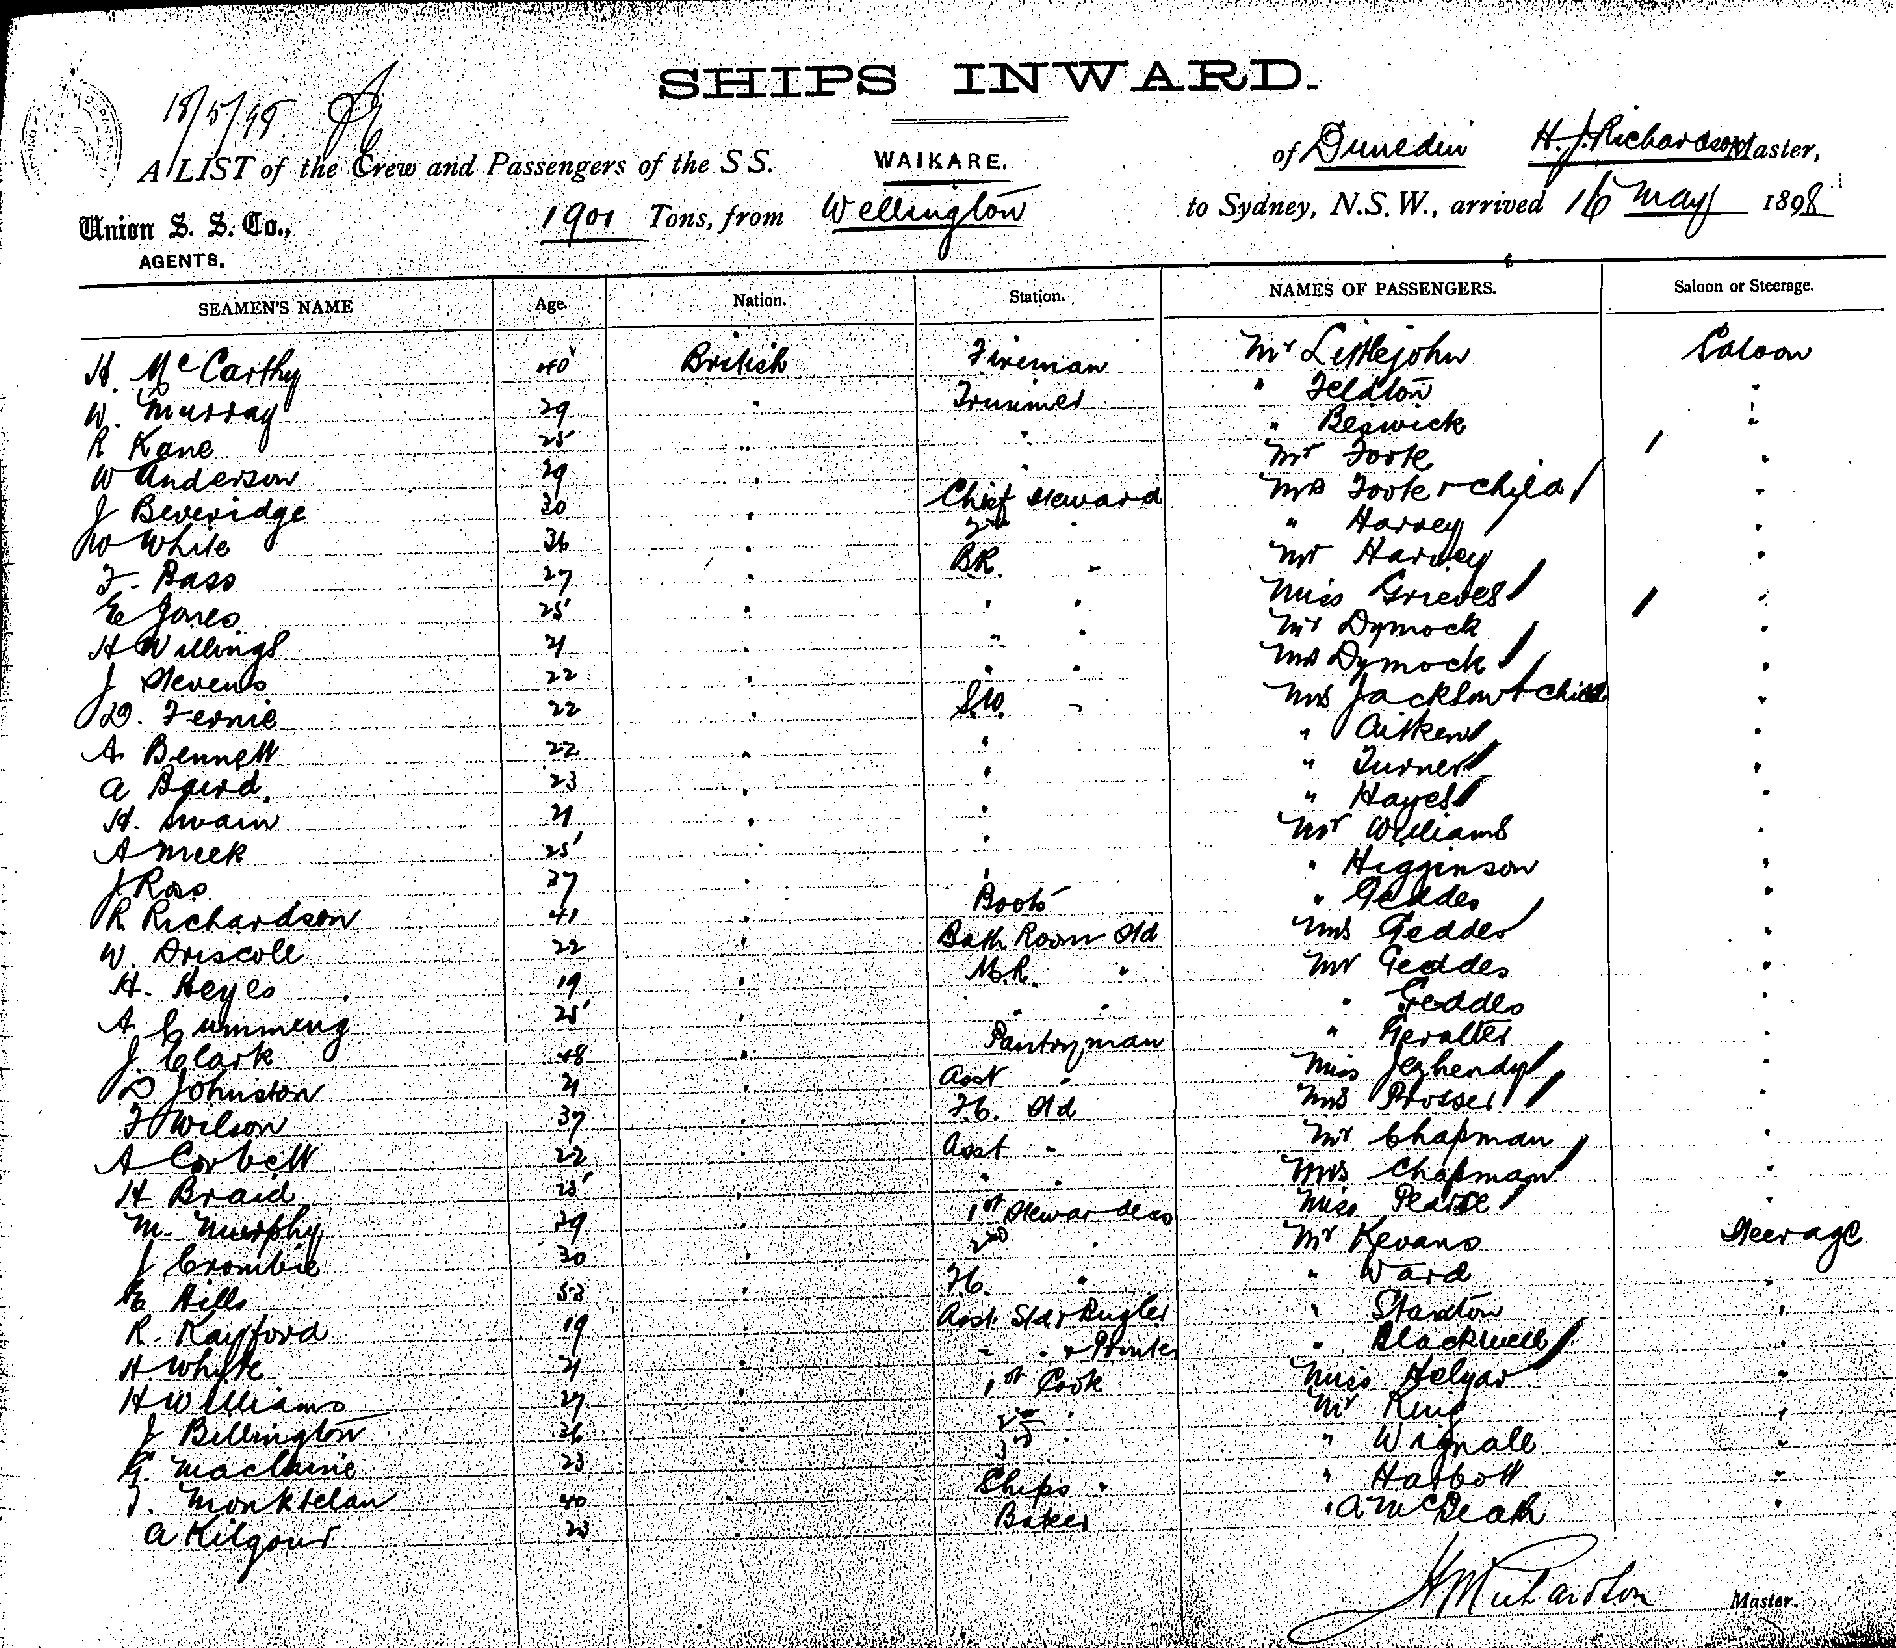 SHIPS INWARD.
18/5/98
A LIST of the Crew and Passengers of the S S. WAIKARE. of Dunedin H. J. Richardson Master,
Union S. S. Co., 1901 Tons, from Wellington to Sydney, N.S.W., arrived 16 May 1898
AGENTS.
SEAMEN'S NAME Age. Nation. Station. NAMES OF PASSENGERS. Saloon or Steerage.
H. McCarthy 40 British Fireman Mr Littlejohn Saloon
W. Murray 29 " Trimmer " Feldton "
R Kane 25 " " " Beswick "
W Anderson 29 " " Mr Foote "
J Beveridge 30 " Chief Steward Mrs Foote + child "
W White 36 " 2nd " " Harvey "
F. Bass 27 " BR. " Mr Harvey "
E Jones 25 " " " Miss Grieves "
H Willings 21 " " " Mr Dymock "
J Stevens 22 " " " Mrs Dymock "
D. Fernie 22 " S.W. " Mrs Jackson + child "
A Bennett 22 " " " Aitken "
A Baird. 23 " " " Turner "
H. Swain 21 " " " Hayes "
A Meek 25 " " Mr Williams "
J Ross 37 " " " Higginson "
R Richardson 41 " Boots " Geddes "
W. Driscoll 22 " Bath Room Std Mrs Geddes "
H. Heyes 19 " M.R. " Mr Geddes "
A Cumming 25 " " " " Geddes "
J. Clark 48 " Pantryman " "
D Johnston 21 " Asst " Miss "
F Wilson 37 " F.C. Std Mrs Prosser "
A Corbett 22 " Asst " Mr Chapman "
H Braid 25 " " " Mrs Chapman "
M. Murphy 29 " 1st Stewardess Miss Pearse "
J Crombie 30 " 2nd " Mr Kevans Steerage
E Hills 53 " F.C. " " Ward "
R. Rayford 19 " Asst. Std + Bugler " Staxton "
H Whyte 21 " " " + Printer " Blackwell "
H Williams 27 " 1st Cook Miss Helyar "
J Billington 26 " 2nd " Mr King "
G. Maclaine 23 " 3rd " " Wignall "
T. 40 " Ships " " Harbott "
A Kilgour 23 " Baker " A "
Richardson Master.